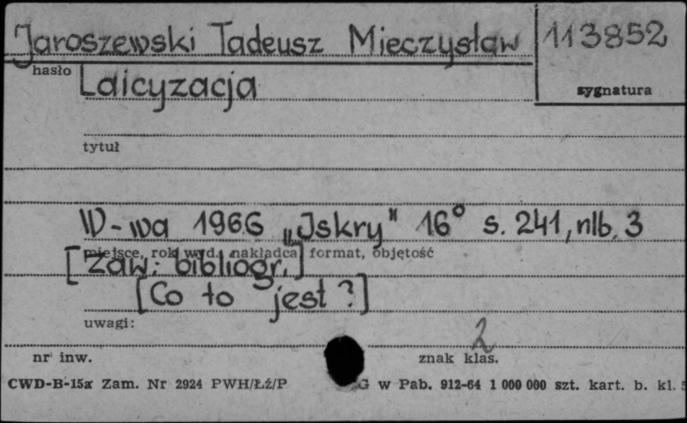 Jaroszewski Tadeusz Mieczysław 113852
hasło
sygnatura
Laicyzacja
tytuł
W-wa 1966 „Iskry" 16° s. 241, nlb. 3
miejsce, rok wyd., nakładca, format, objętość
[Zaw: bibliogr.]
[Co to jest?]
uwagi:
2
nr inw. znak klas.
CWD-B-15a Zam. Nr 2924 PWH/Łź/P G w Pab. 912-64 1 000 000 szt. kart. b. kl. 5